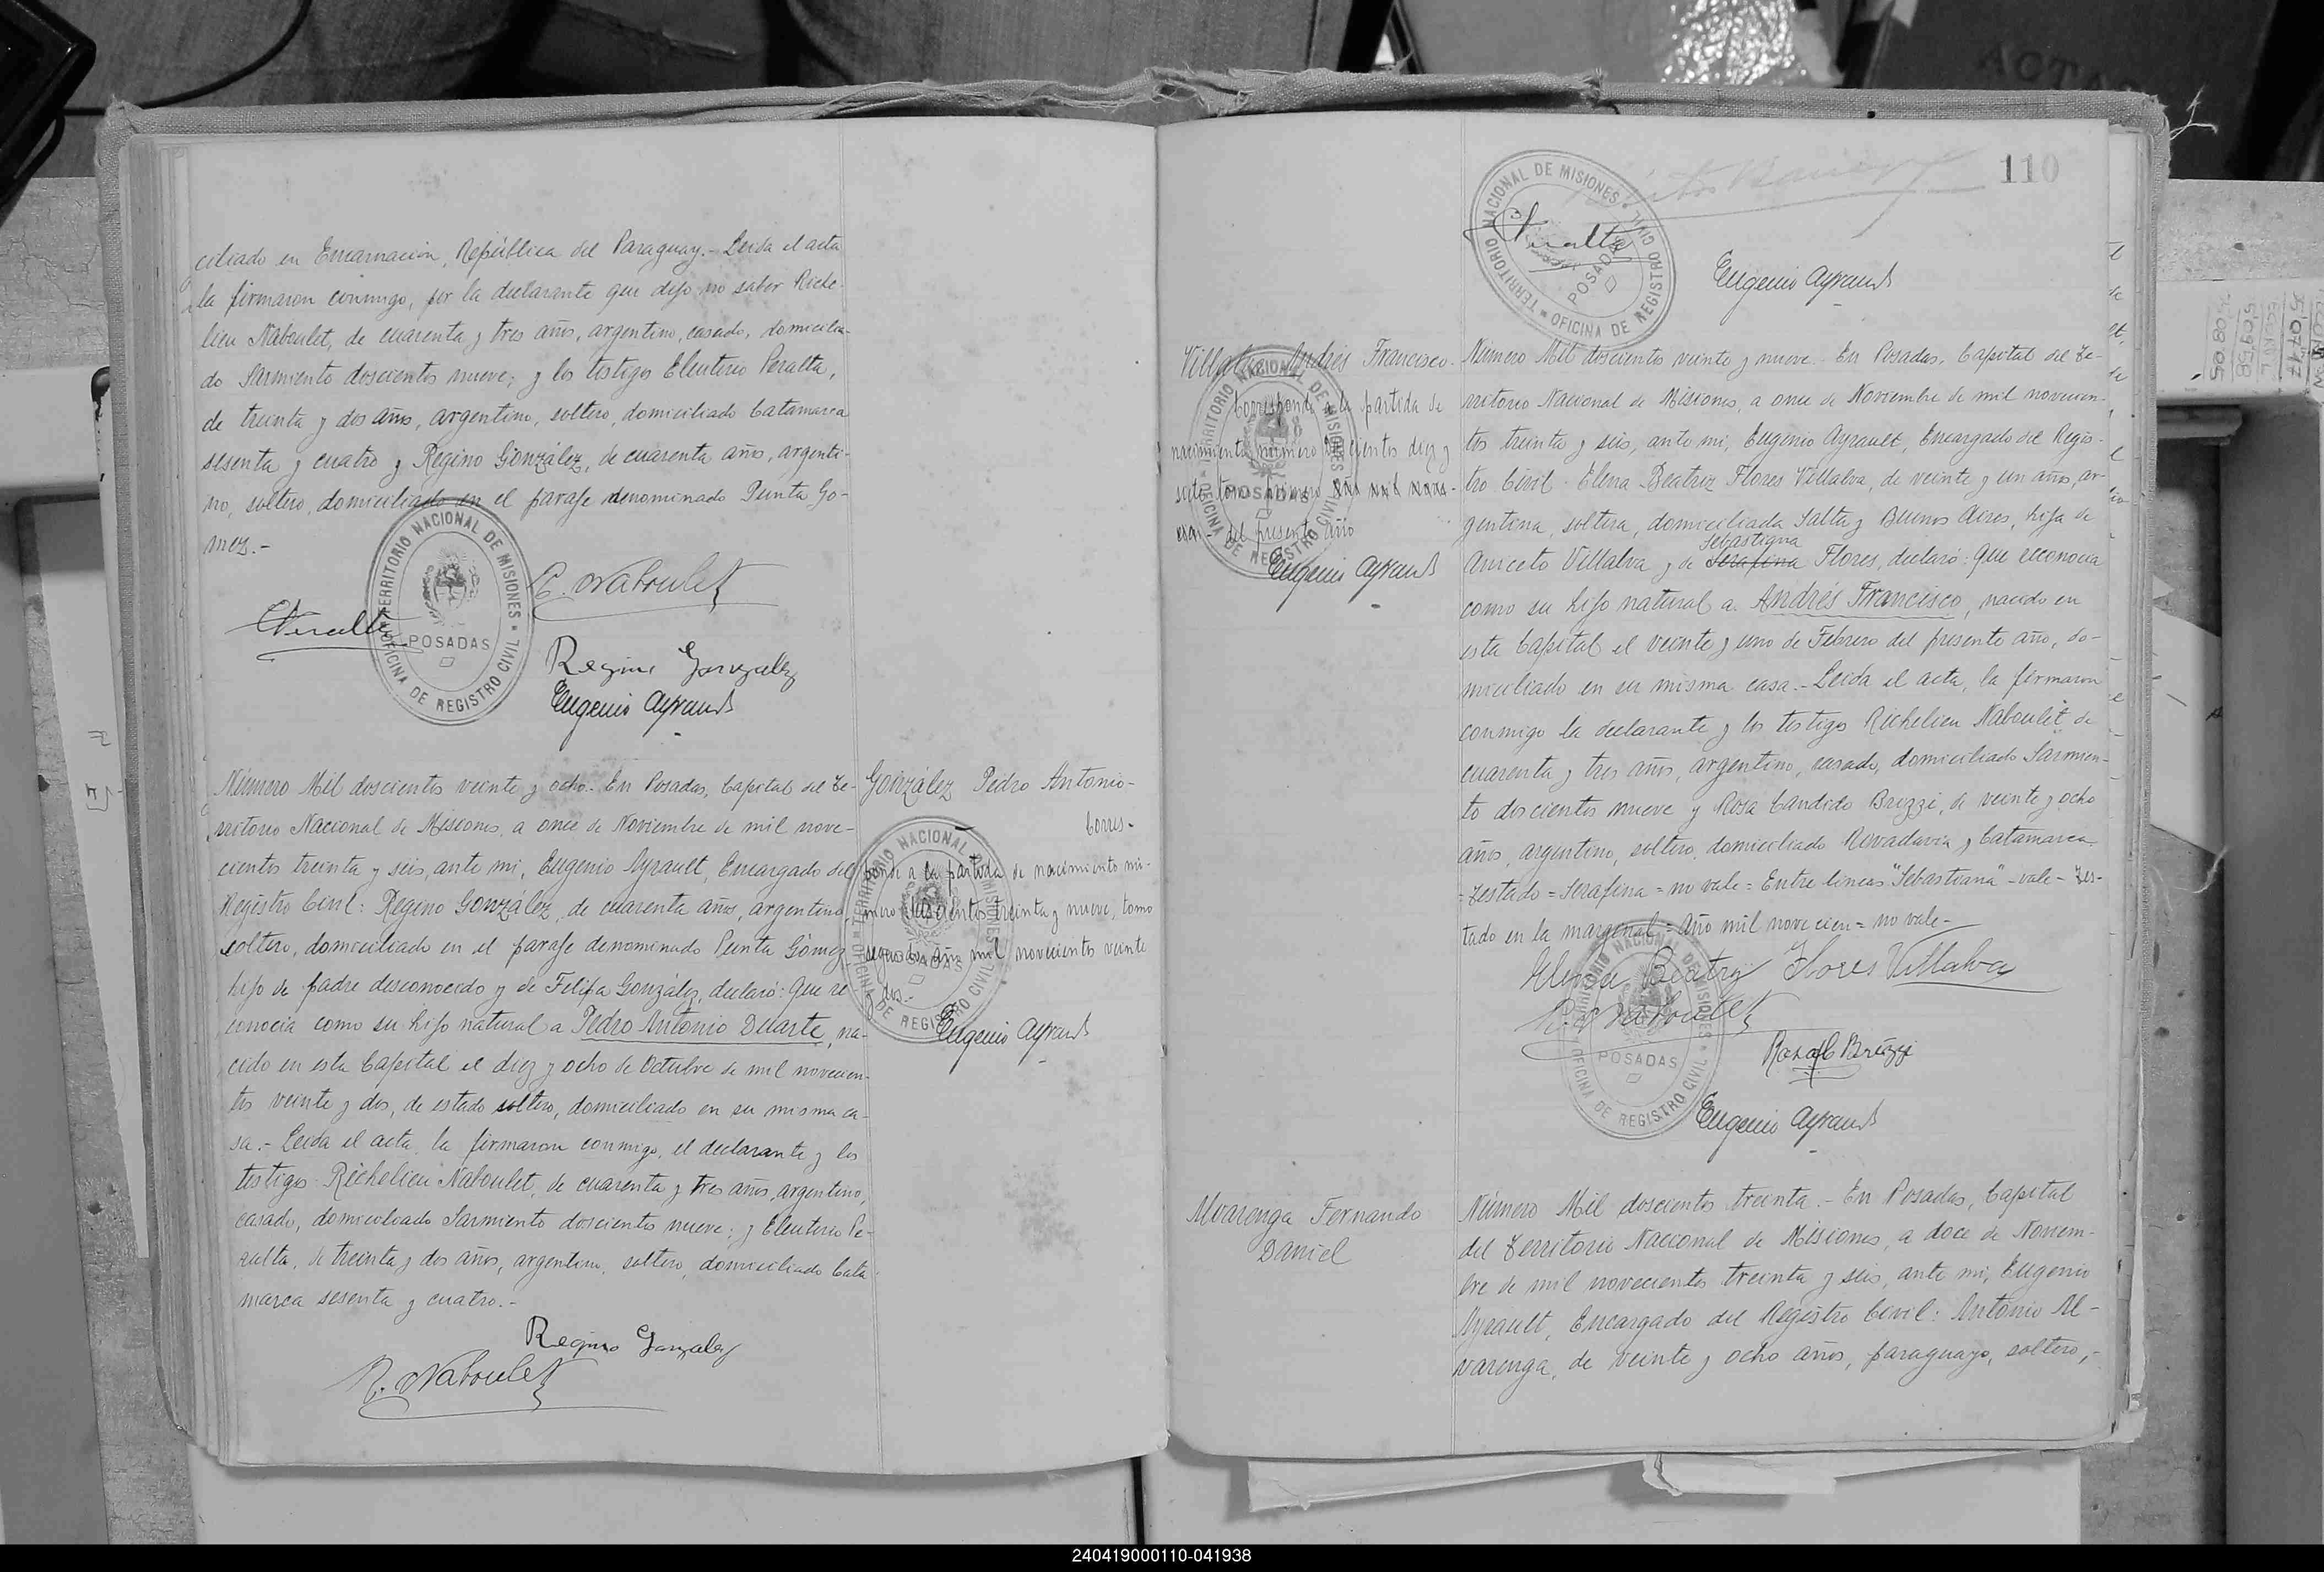 ciliado en Encarnación, República del Paraguay.- Leida el acta
la firmaron conmigo, por la declarante que dijo no saber Riche-
lieu Naboulet, de cuarenta y tres años, argentino, casado, domicilia-
do Sarmiento doscientos nueve; y los testigos Eleuterio Peralta,
de treinta y dos años, argentino, soltero, domiciliado Catamarca
sesenta y cuatro y Regino González, de cuarenta años, argenti-
no, soltero, domiciliado en el paraje denominado Punta Gó-
mez.-
TERRITORIO NACIONAL DE MISIONES
OFICINA DE REGISTRO CIVIL
POSADAS
R. Naboulet
EPeralta
Regino Gonzalez
Eugenio Ayrault
Número Mil doscientos veinte y ocho.- En Posadas, Capital del Te-
rritorio Nacional de Misiones, a once de Noviembre de mil nove-
cientos treinta y seis, ante mi, Eugenio Ayrault, Encargado del
Registro Civil: Regino González, de cuarenta años, argentino,
soltero, domiciliado en el paraje denominado Punta Gómez,
hijo de padre desconocido y de Felipa González, declaró: Que re-
conocia como su hijo natural a Pedro Antonio Duarte, na-
cido en esta Capital el diez y ocho de Octubre de mil novecien-
tos veinte y dos, de estado soltero, domiciliado en su misma ca-
sa.- Leida el acta, la firmaron conmigo, el declarante y los
testigos Richelieu Naboulet, de cuarenta y tres años, argentino,
casado, domiciliado Sarmiento doscientos nueve; y Eleuterio Pe-
ralta, de treinta y dos años, argentino, soltero, domiciliado Cata-
marca sesenta y cuatro.-
Regino Gonzalez
R. Naboulet
González Pedro Antonio-
Corres-
ponde a la partida de nacimiento nú-
mero treinta y nueve, tomo
segundo año mil novecientos veinte
y dos.-
TERRITORIO NACIONAL DE MISIONES
OFICINA DE REGISTRO CIVIL
POSADAS
Eugenio Ayrault
110
TERRITORIO NACIONAL DE MISIONES
OFICINA DE REGISTRO CIVIL
POSADAS
EPeralta
Eugenio Ayrault
Villalva Andrés Francisco-
Corresponde a la partida de
nacimiento número Doscientos diez y
seis tomo primero año mil nove-
cien- del presente año
TERRITORIO NACIONAL DE MISIONES
OFICINA DE REGISTRO CIVIL
POSADAS
Eugenio Ayrault
Número Mil doscientos veinte y nueve.- En Posadas, Capital del Te-
rritorio Nacional de Misiones, a once de Noviembre de mil novecien-
tos treinta y seis, ante mi, Eugenio Ayrault, Encargado del Regis-
tro Civil: Elena Beatriz Flores Villalva, de veinte y un años, ar-
gentina, soltera, domiciliada Salta y Buenos Aires, hija de
Sebastiana
Aniceto Villalva y de Serafina Flores, declaró: Que reconocia
como su hijo natural a Andrés Francisco, nacido en
esta Capital el veinte y uno de Febrero del presente año, do-
miciliado en su misma casa.- Leida el acta, la firmaron
conmigo la declarante y los testigos Richelieu Naboulet de
cuarenta y tres años, argentino, casado, domiciliado Sarmien-
to doscientos nueve y Rosa Candido Brizzi, de veinte y ocho
años, argentino, soltero, domiciliado Rivadavia y Catamarca.
=Testado=Serafina=no vale=Entre lineas "Sebastiana"-vale-Tes-
tado en la marginal=Año mil novecien=no vale-
Elena Beatriz Flores Villalva
R. Naboulet
TERRITORIO NACIONAL DE MISIONES
OFICINA DE REGISTRO CIVIL
POSADAS
Rosa C Brizzi
Eugenio Ayrault
Alvarenga Fernando
Daniel
Número Mil doscientos treinta.- En Posadas, Capital
del Territorio Nacional de Misiones, a doce de Noviem-
bre de mil novecientos treinta y seis, ante mi, Eugenio
Ayrault, Encargado del Registro Civil: Antonio Al-
varenga, de veinte y ocho años, paraguayo, soltero,-
240419000110-041938